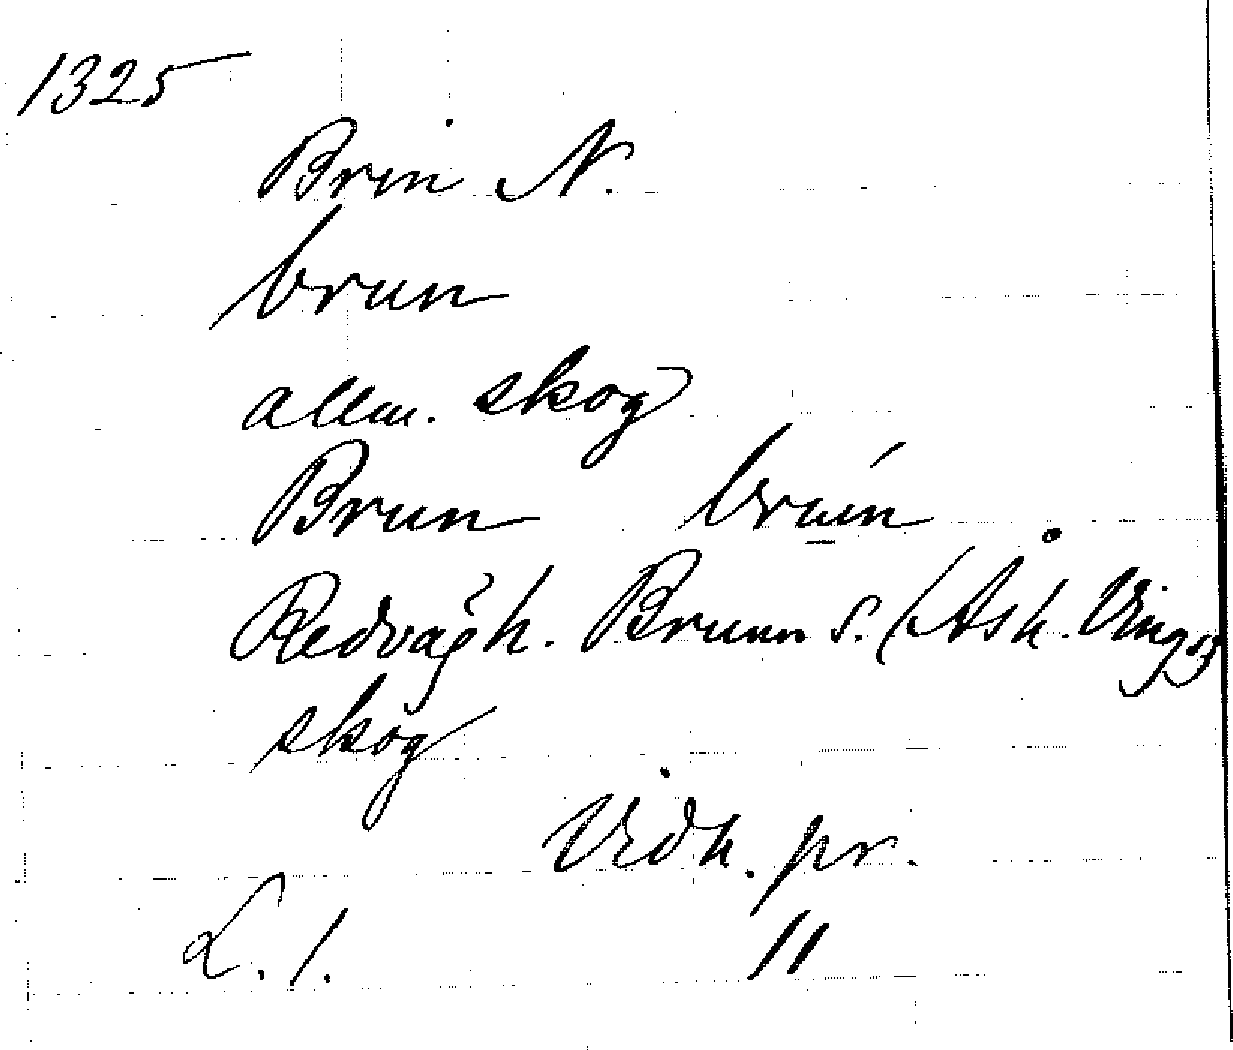 1325
Brin N.
brun
allm. skog
Brun brún
Redvägh. Brunn s. (Åsh. Ving
skog
Vidk. pr.
L. 1. 11